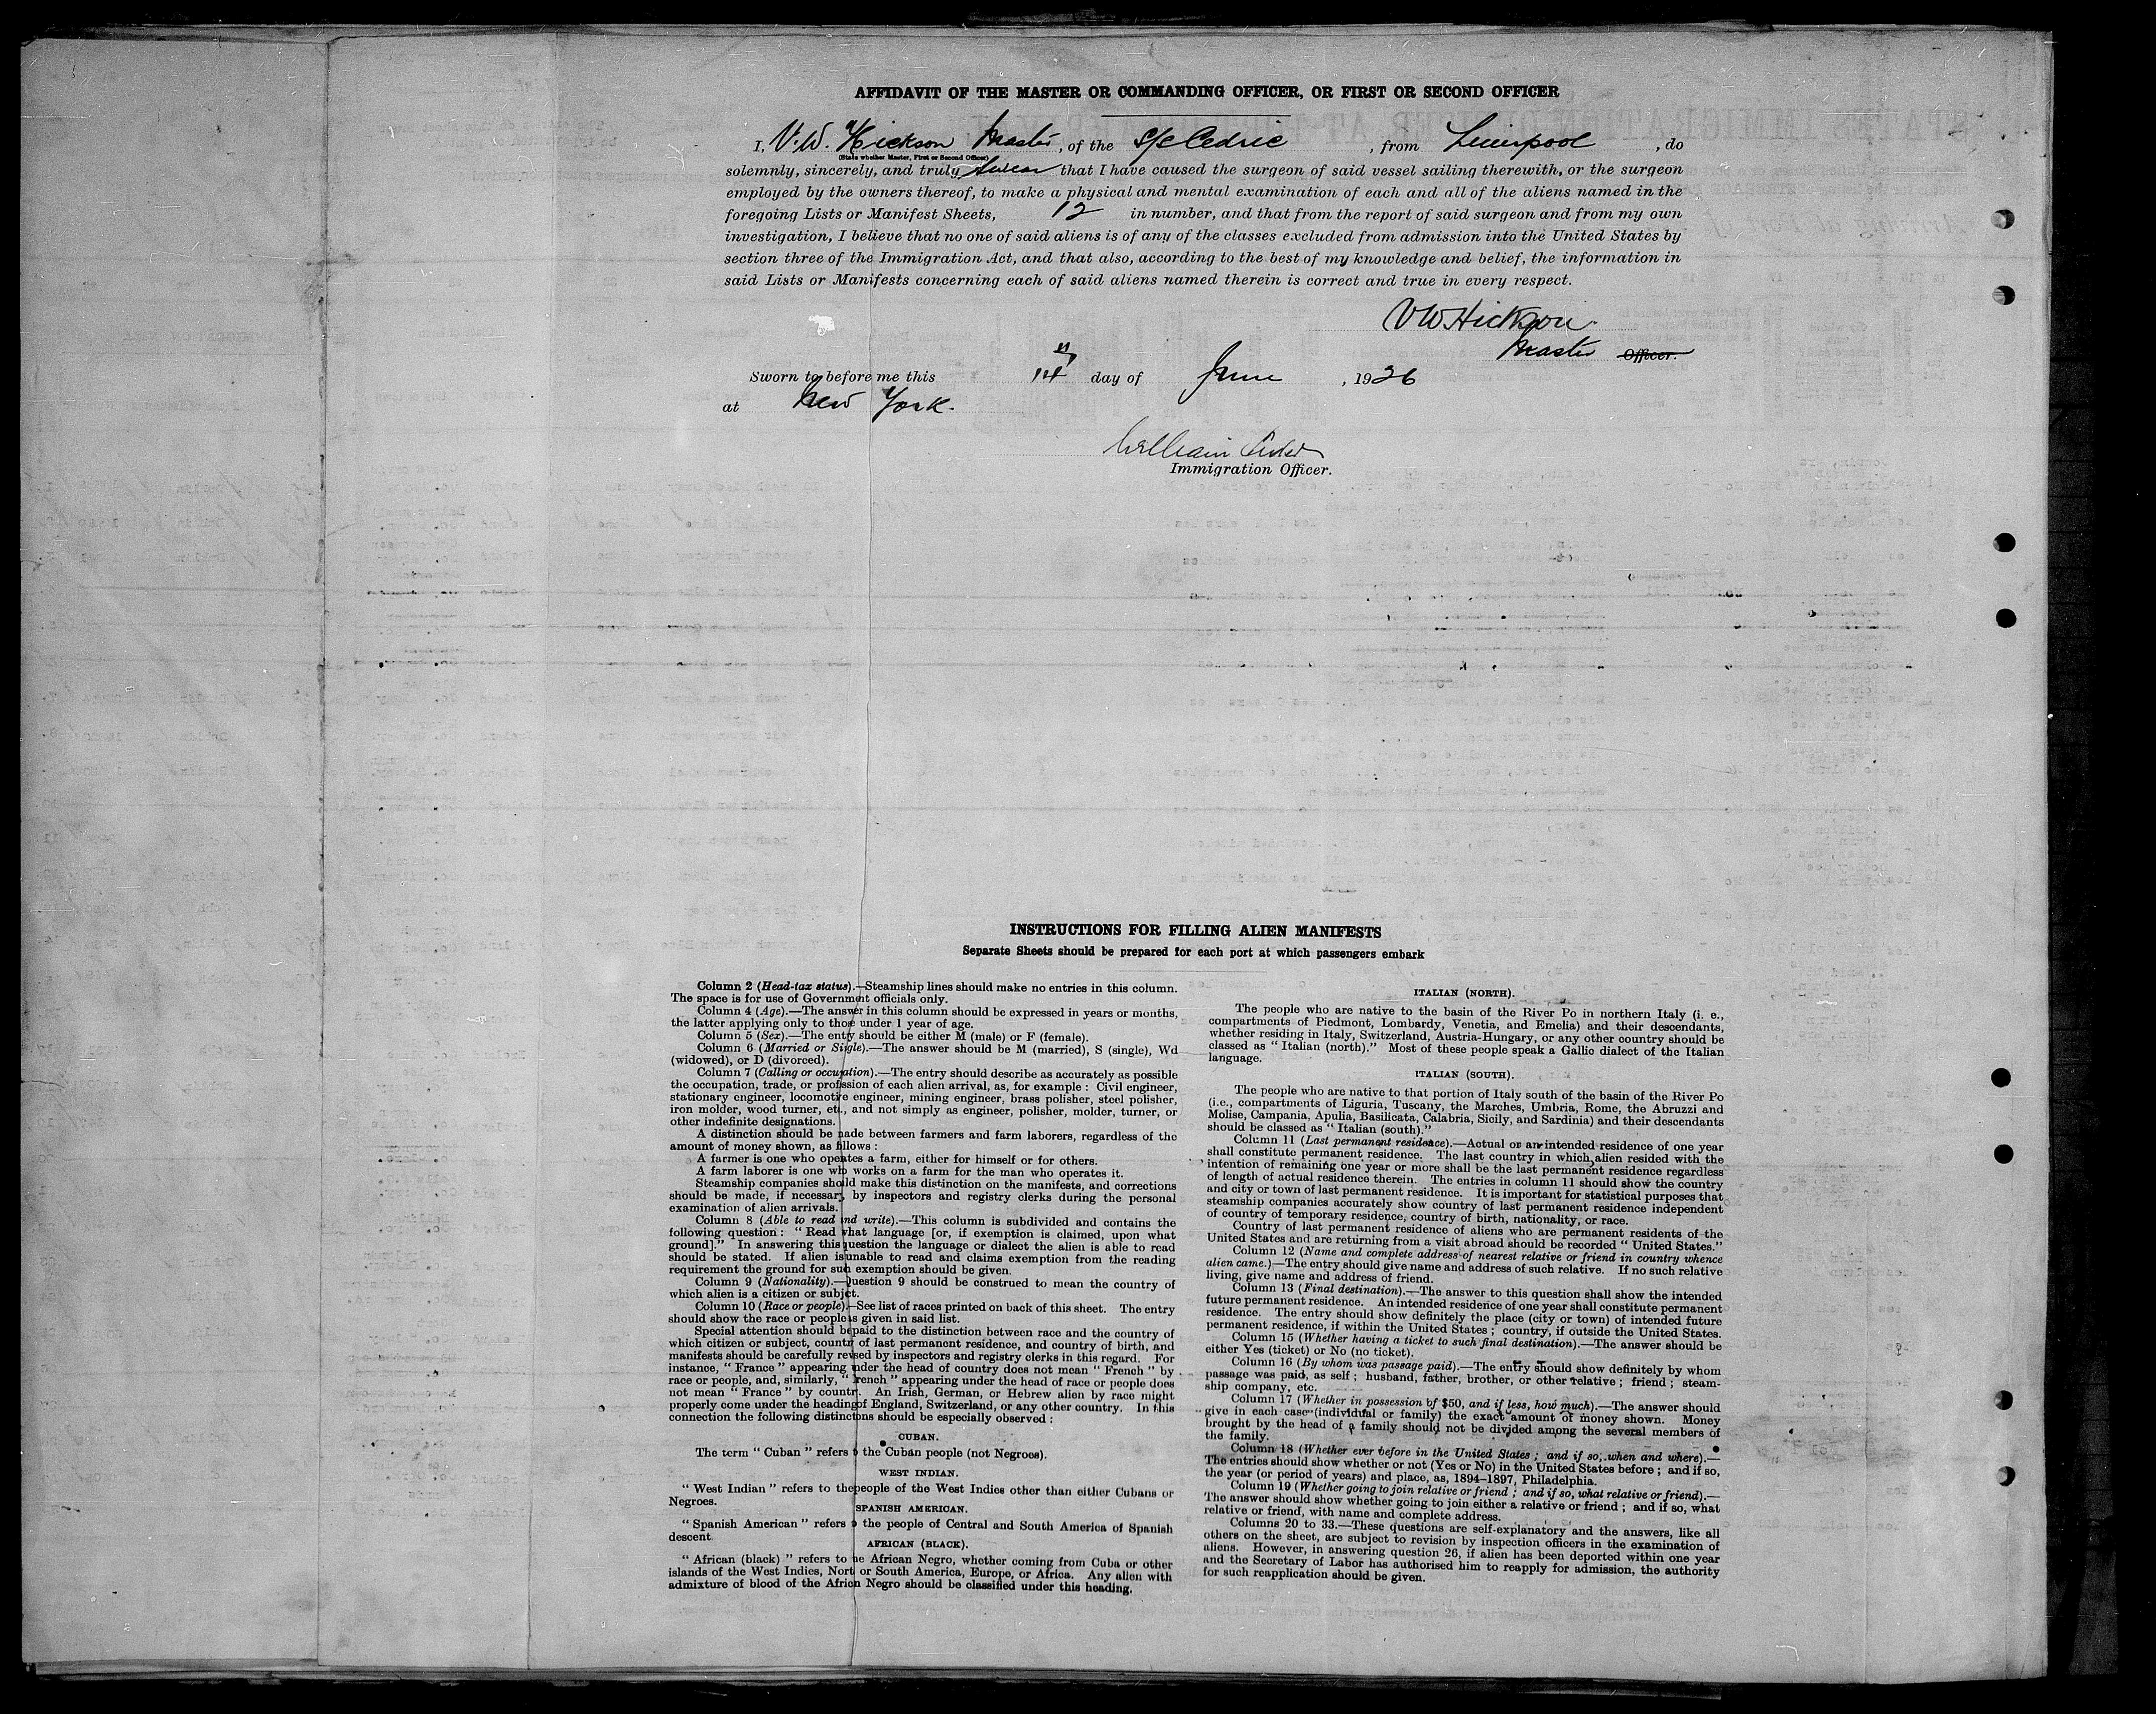 AFFIDAVIT OF THE MASTER OR COMMANDING OFFICER, OR FIRST OR SECOND OFFICER
I, V. W. Hickson Master, of the S/S Cedric, from Liverpool, do
(State whether Master, First or Second Officer)
solemnly, sincerely, and truly swear that I have caused the surgeon of said vessel sailing therewith, or the surgeon
employed by the owners thereof, to make a physical and mental examination of each and all of the aliens named in the
foregoing Lists or Manifest Sheets, 12 in number, and that from the report of said surgeon and from my own
investigation, I believe that no one of said aliens is of any of the classes excluded from admission into the United States by
section three of the Immigration Act, and that also, according to the best of my knowledge and belief, the information in
said Lists or Manifests concerning each of said aliens named therein is correct and true in every respect.
VW Hickson.
Master Officer.
Sworn to before me this day of June, 1926
at New York.
William
Immigration Officer.
INSTRUCTIONS FOR FILLING ALIEN MANIFESTS
Separate Sheets should be prepared for each port at which passengers embark
Column 2 (Head-tax status).—Steamship lines should make no entries in this column.
The space is for use of Government officials only.
Column 4 (Age).—The answer in this column should be expressed in years or months,
the latter applying only to those under 1 year of age.
Column 5 (Sex).—The entry should be either M (male) or F (female).
Column 6 (Married or Single).—The answer should be M (married), S (single), Wd
(widowed), or D (divorced).
Column 7 (Calling or occupation).—The entry should describe as accurately as possible
the occupation, trade, or profession of each alien arrival, as, for example : Civil engineer,
stationary engineer, locomotive engineer, mining engineer, brass polisher, steel polisher,
iron molder, wood turner, etc., and not simply as engineer, polisher, molder, turner, or
other indefinite designations.
A distinction should be made between farmers and farm laborers, regardless of the
amount of money shown, as follows :
A farmer is one who operates a farm, either for himself or for others.
A farm laborer is one who works on a farm for the man who operates it.
Steamship companies should make this distinction on the manifests, and corrections
should be made, if necessary, by inspectors and registry clerks during the personal
examination of alien arrivals.
Column 8 (Able to read and write).—This column is subdivided and contains the
following question : " Read what language [or, if exemption is claimed, upon what
ground]." In answering this question the language or dialect the alien is able to read
should be stated. If alien is unable to read and claims exemption from the reading
requirement the ground for such exemption should be given.
Column 9 (Nationality).—Question 9 should be construed to mean the country of
which alien is a citizen or subject.
Column 10 (Race or people).—See list of races printed on back of this sheet. The entry
should show the race or people as given in said list.
Special attention should be paid to the distinction between race and the country of
which citizen or subject, country of last permanent residence, and country of birth, and
manifests should be carefully revised by inspectors and registry clerks in this regard. For
instance, " France " appearing under the head of country does not mean " French " by
race or people, and, similarly, " French " appearing under the head of race or people does
not mean " France " by country. An Irish, German, or Hebrew alien by race might
properly come under the heading of England, Switzerland, or any other country. In this
connection the following distinctions should be especially observed :
CUBAN.
The term " Cuban " refers to the Cuban people (not Negroes).
WEST INDIAN.
" West Indian " refers to the people of the West Indies other than either Cubans or
Negroes.
SPANISH AMERICAN.
" Spanish American " refers to the people of Central and South America of Spanish
descent
AFRICAN (BLACK).
" African (black) " refers to the African Negro, whether coming from Cuba or other
islands of the West Indies, North or South America, Europe, or Africa. Any alien with
admixture of blood of the African Negro should be classified under this heading.
ITALIAN (NORTH).
The people who are native to the basin of the River Po in northern Italy (i. e.,
compartments of Piedmont, Lombardy, Venetia, and Emelia) and their descendants,
whether residing in Italy, Switzerland, Austria-Hungary, or any other country should be
classed as " Italian (north)." Most of these people speak a Gallic dialect of the Italian
language.
ITALIAN (SOUTH).
The people who are native to that portion of Italy south of the basin of the River Po
(i.e., compartments of Liguria, Tuscany, the Marches, Umbria, Rome, the Abruzzi and
Molise, Campania, Apulia, Basilicata, Calabria, Sicily, and Sardinia) and their descendants
should be classed as " Italian (south)."
Column 11 (Last permanent residence).—Actual or an intended residence of one year
shall constitute permanent residence. The last country in which alien resided with the
intention of remaining one year or more shall be the last permanent residence regardless
of length of actual residence therein. The entries in column 11 should show the country
and city or town of last permanent residence. It is important for statistical purposes that
steamship companies accurately show country of last permanent residence independent
of country of temporary residence, country of birth, nationality, or race.
Country of last permanent residence of aliens who are permanent residents of the
United States and are returning from a visit abroad should be recorded " United States."
Column 12 (Name and complete address of nearest relative or friend in country whence
alien came.)—The entry should give name and address of such relative. If no such relative
living, give name and address of friend.
Column 13 (Final destination).—The answer to this question shall show the intended
future permanent residence. An intended residence of one year shall constitute permanent
residence. The entry should show definitely the place (city or town) of intended future
permanent residence, if within the United States ; country, if outside the United States.
Column 15 (Whether having a ticket to such final destination).—The answer should be
either Yes (ticket) or No (no ticket).
Column 16 (By whom was passage paid).—The entry should show definitely by whom
passage was paid, as self ; husband, father, brother, or other relative ; friend ; steam-
ship company, etc.
Column 17 (Whether in possession of $50, and if less, how much).—The answer should
give in each case (individual or family) the exact amount of money shown. Money
brought by the head of a family should not be divided among the several members of
the family.
Column 18 (Whether ever before in the United States ; and if so, when and where).—
The entries should show whether or not (Yes or No) in the United States before ; and if so,
the year (or period of years) and place, as, 1894–1897, Philadelphia.
Column 19 (Whether going to join relative or friend ; and if so, what relative or friend).—
The answer should show whether going to join either a relative or friend ; and if so, what
relative or friend, with name and complete address.
Columns 20 to 33.—These questions are self-explanatory and the answers, like all
others on the sheet, are subject to revision by inspection officers in the examination of
aliens. However, in answering question 26, if alien has been deported within one year
and the Secretary of Labor has authorised him to reapply for admission, the authority
for such reapplication should be given.